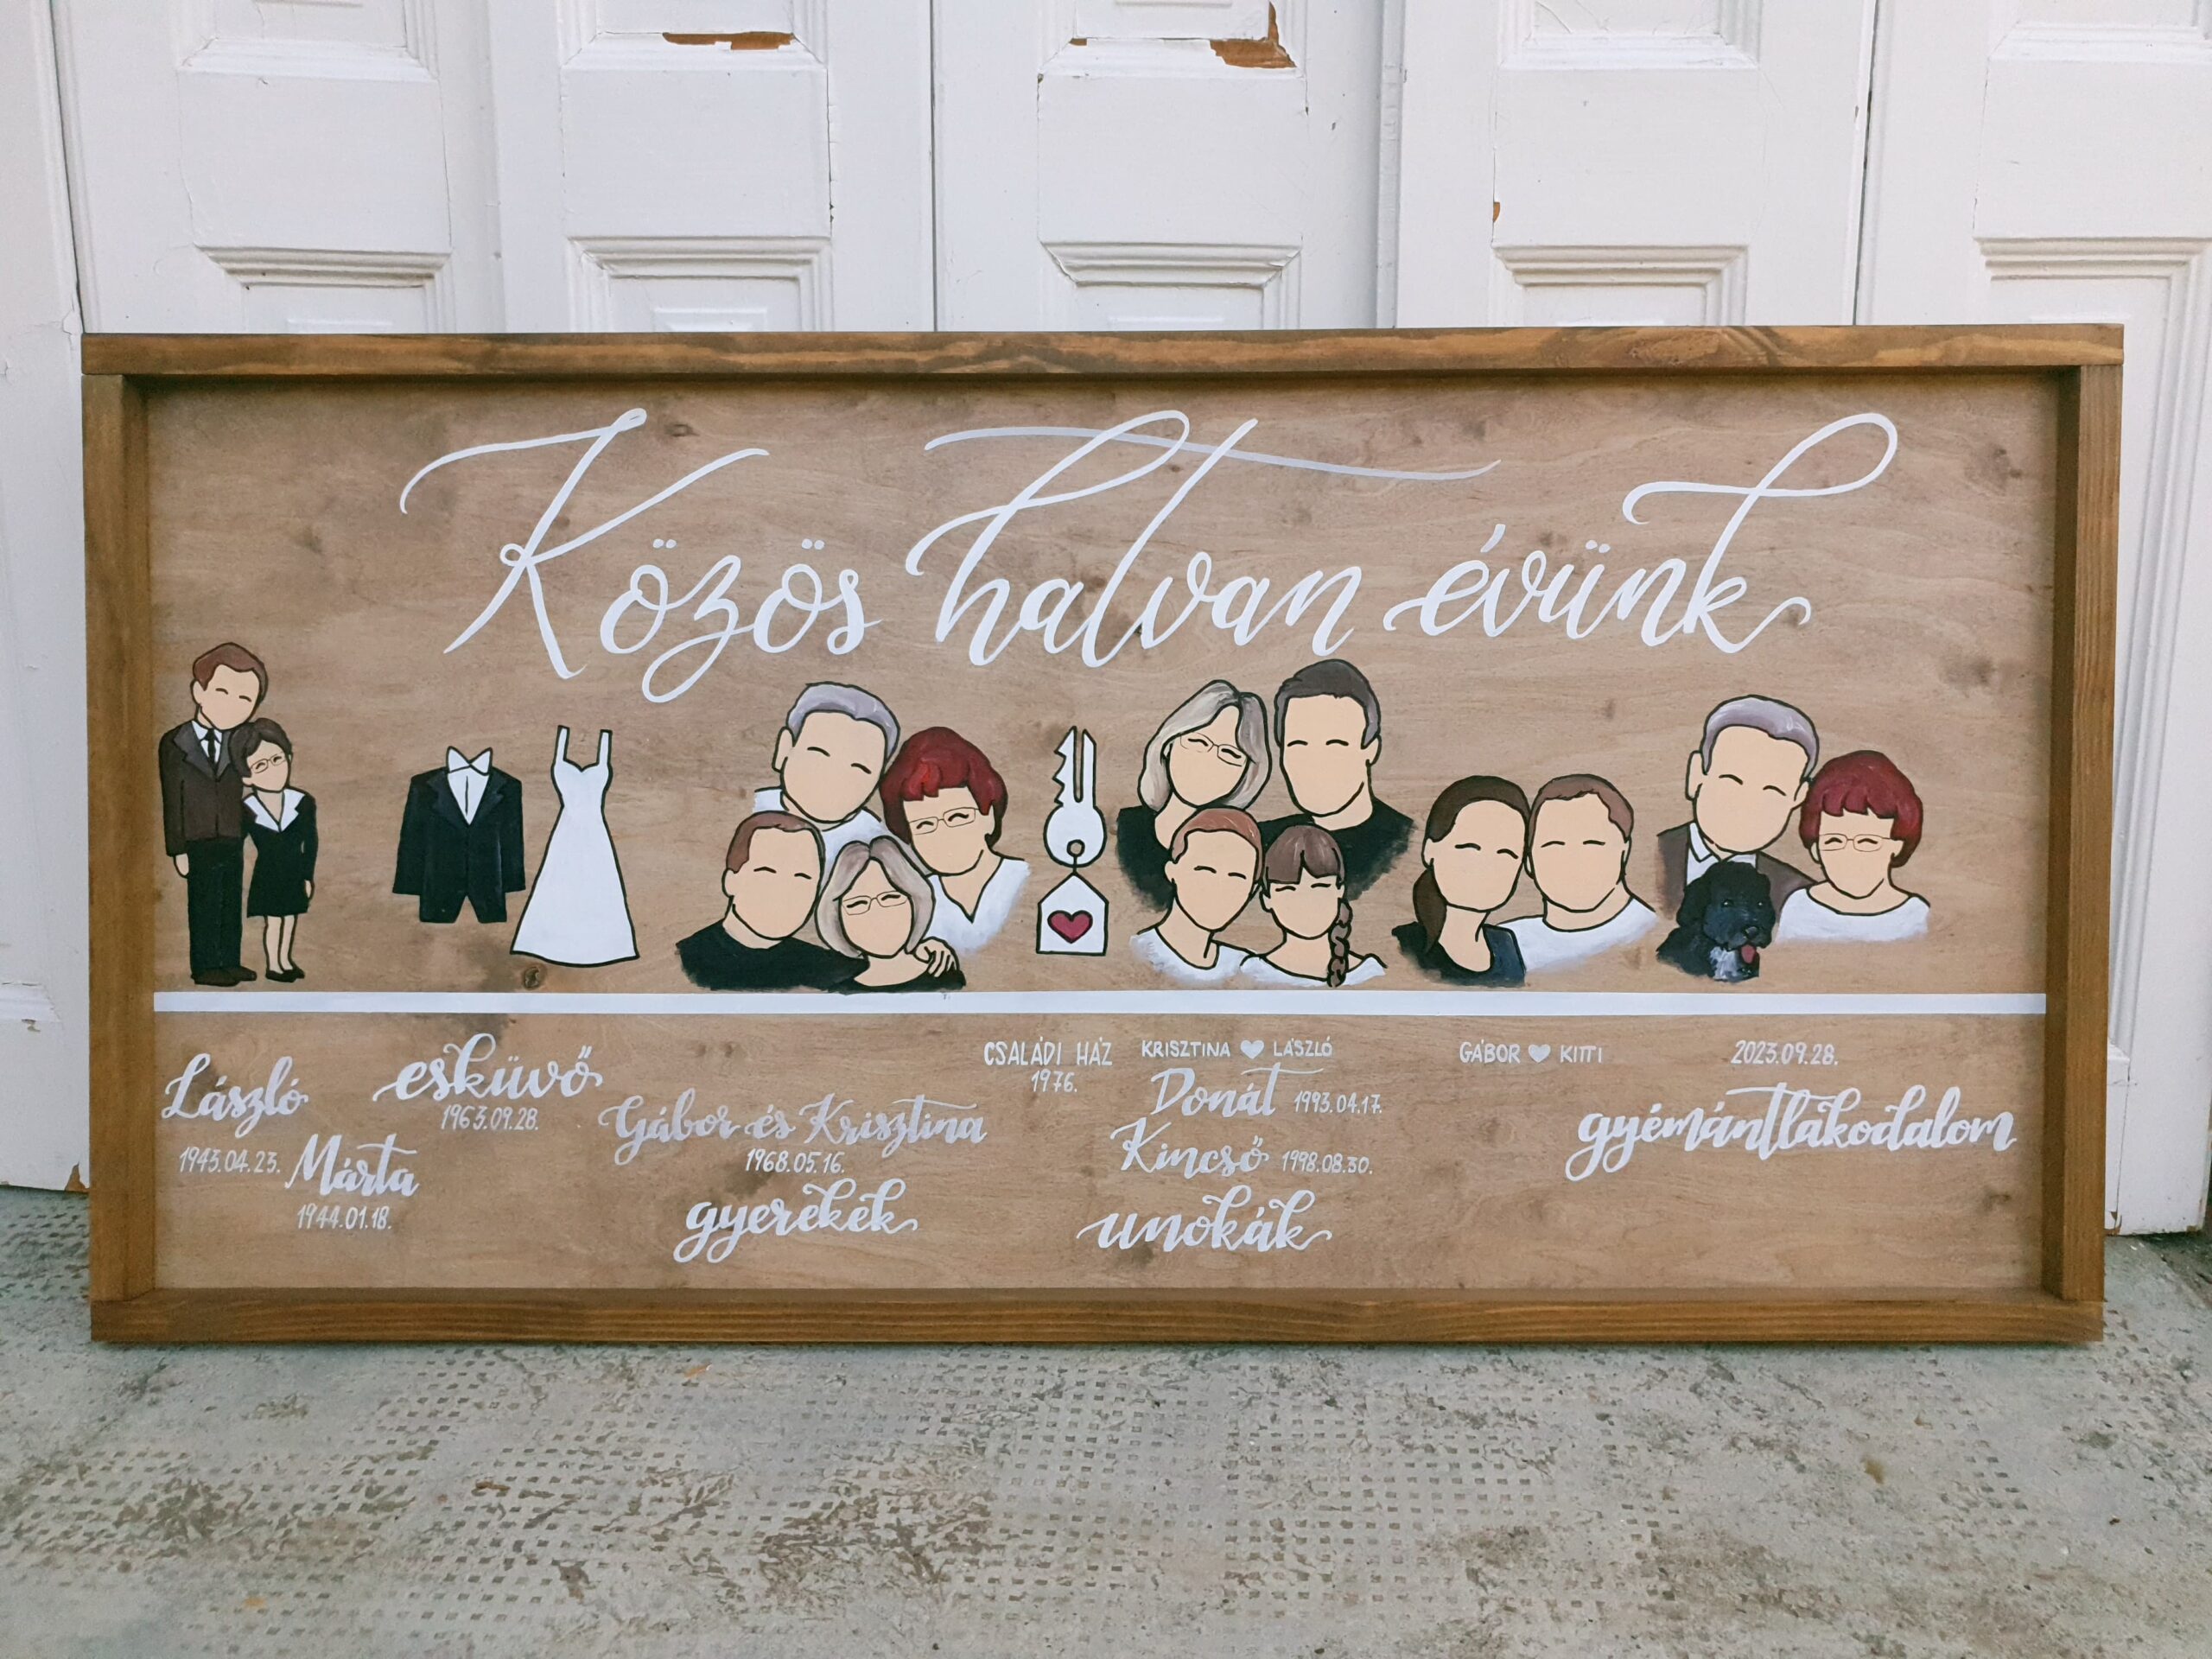 Közös hatvan évünk
László
1943.04.23.
Márta
1944.01.18.
esküvő
1963.09.28.
Gábor és Krisztina
1968.05.16.
gyerekek
CSALÁDI HÁZ
1976.
KRISZTINA LÁSZLÓ
Donát 1993.04.17.
Kincső 1998.08.30.
unokák
GÁBOR KITTI
2023.09.28.
gyémántlakodalom